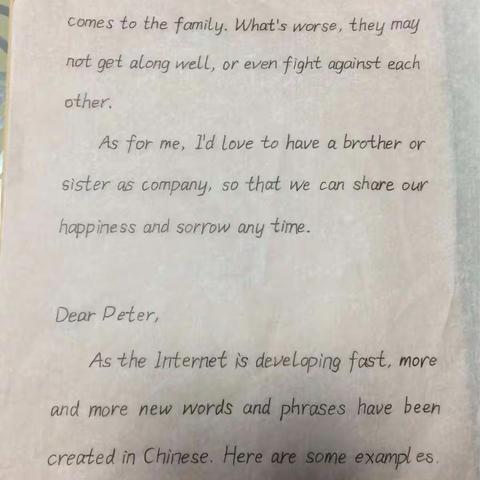 comes to the family. What's worse, they may
not get along well, or even fight against each
other.
As for me, I'd love to have a brother or
sister as company, so that we can share our
happiness and sorrow any time.
Dear Peter,
As the Internet is developing fast, more
and more new words and phrases have been
created in Chinese. Here are some examples.